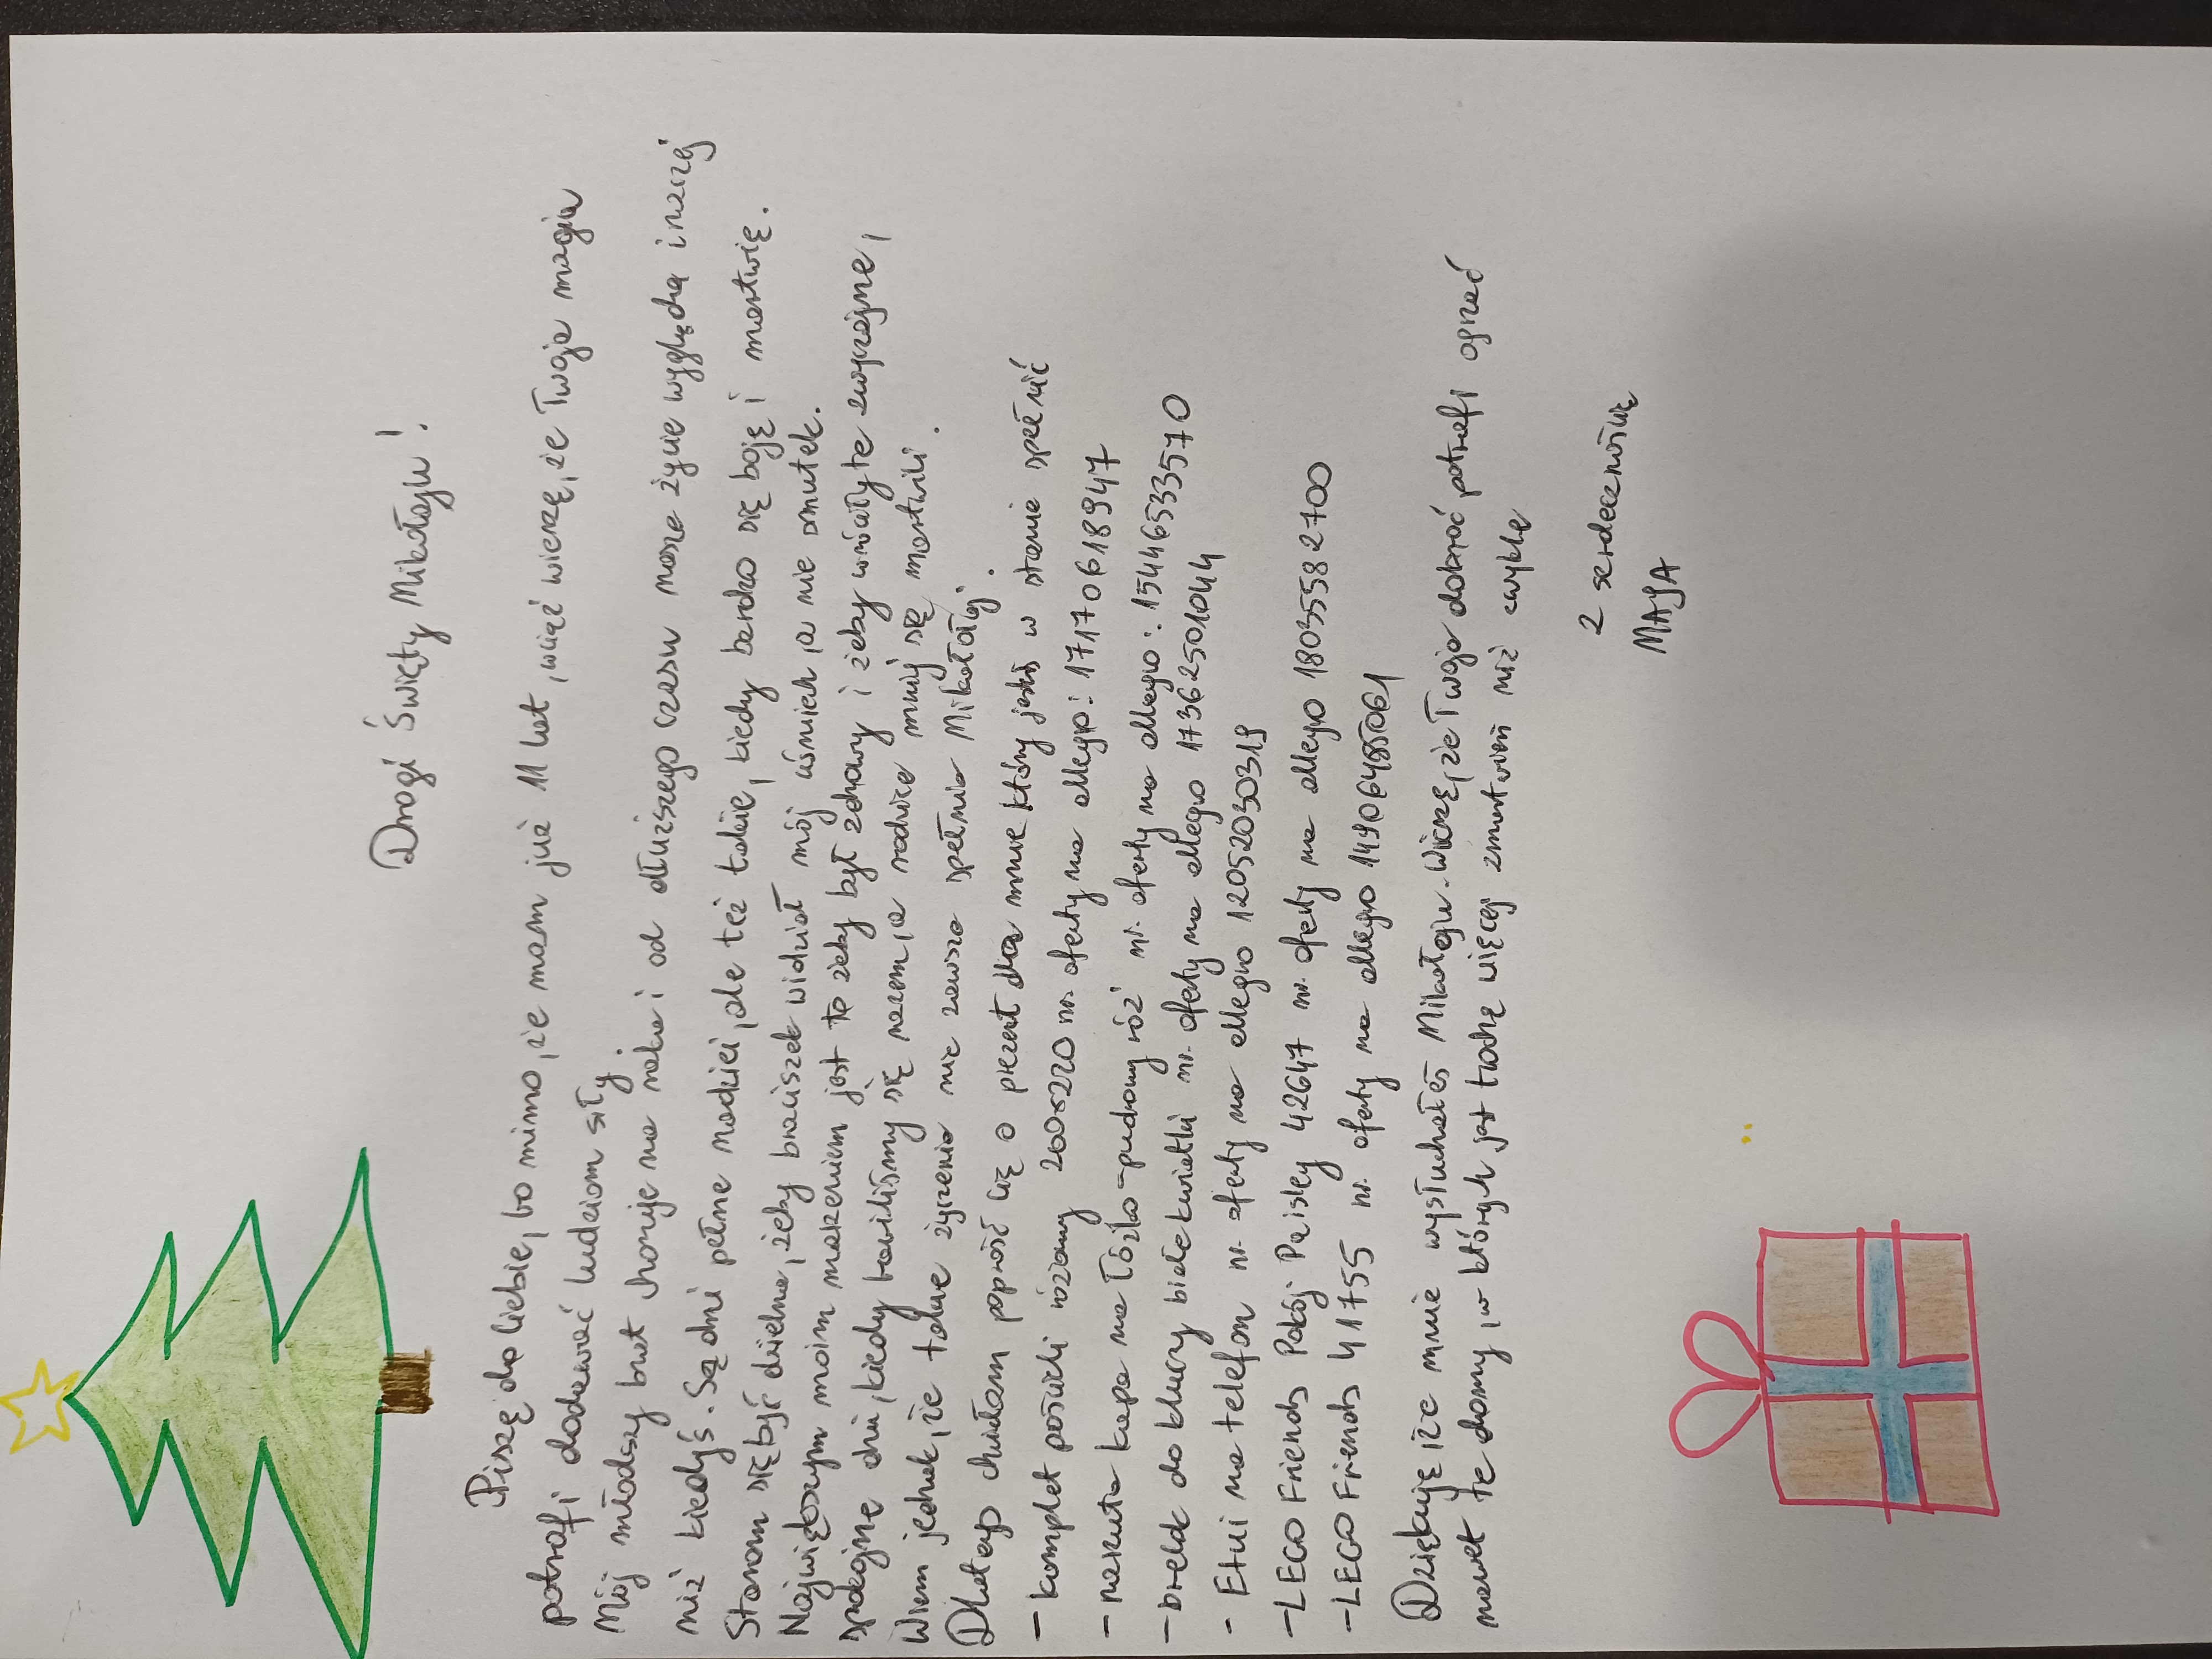 Drogi Święty Mikołaju!
Piszę do Ciebie, bo mimo, że mam już 11 lat, wciąż wierzę, że Twoja magia
potrafi dodawać ludziom siły.
Mój młodszy brat choruje na raka i od dłuższego czasu nasze życie wygląda inaczej
niż kiedyś. Są dni pełne nadziei, ale też takie, kiedy bardzo się boję i martwię.
Staram się być dzielna, żeby braciszek widział mój uśmiech, a nie smutek.
Największym moim marzeniem jest to żeby był zdrowy i żeby wróciły te zwyczajne,
spokojne dni, kiedy bawiliśmy się razem, a rodzice mniej się martwili.
Wiem jednak, że takie życzenia nie zawsze spełnia Mikołaj.
Dlatego chciałam poprosić Cię o prezent dla mnie który jesteś w stanie spełnić
- komplet pościeli różowy 200x220 nr. oferty na allegro: 17170618947
- narzuta kapa na łóżko - pudrowy róż nr. oferty na allegro: 15446533570
- brelok do kluczy białe kwiatki nr. oferty na allegro 17362501044
- Etui na telefon nr. oferty na allegro 12052030319
- LEGO Friends Pokój Paisley 42647 nr. oferty na allegro 18035582700
- LEGO Friends 41755 nr. oferty na allegro 14906485061
Dziękuję, że mnie wysłuchałeś Mikołaju. Wierzę, że Twoja dobroć potrafi ogrzać
nawet te domy, w których jest trochę więcej zmartwień niż zwykle
Z serdecznością
MAJA